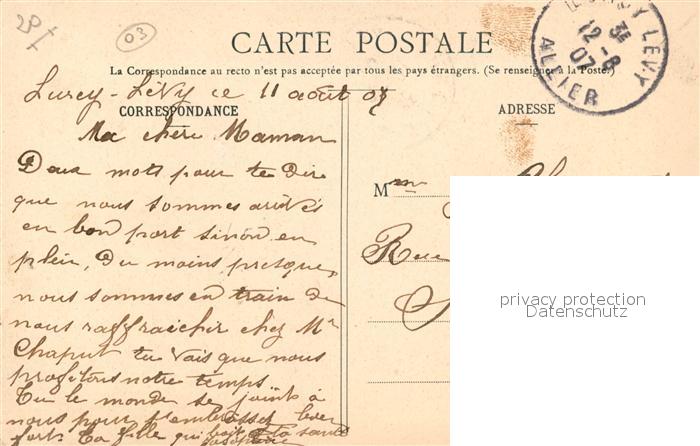 2F
03
CARTE POSTALE
La Correspondance au recto n'est pas acceptée par tous les pays étrangers. (Se renseigner à la Poste.)
LÉVY
12-8
07
ALLIER
Lurcy-Lévy ce 11 août 07
CORRESPONDANCE
ADRESSE
Ma chère Maman
Deux mots pour te dire
que nous sommes arrivés
en bon port sinon en
plein, du moins presque,
nous sommes en train de
nous raffraicher chez Mr
Chaput tu vais que nous
profitons notre temps
Tou le monde se joint à
nous pour
fort. Ta fille qui boit à ta santé
Mme
Rue
privacy protection
Datenschutz